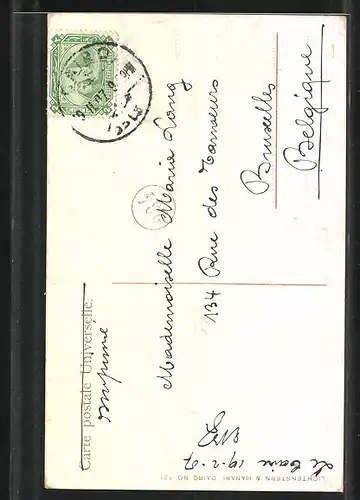 Carte postale Universelle.
imprimé
Mademoiselle Maria Lang
134 Rue des Tanneurs
Bruxelles
Belgique
Le Caire 19-2-07
LICHTENSTERN & HARARI, CAIRO NO. 121